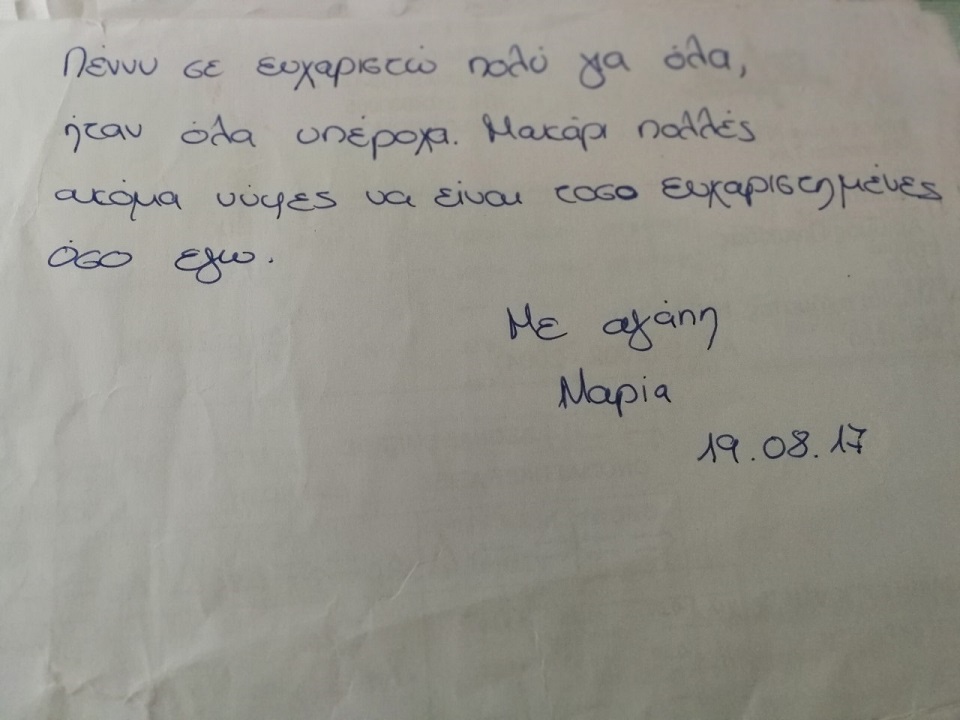 Πέννυ σε ευχαριστώ πολύ για όλα,
ήταν όλα υπέροχα. Μακάρι πολλές
ακόμα νύφες να είναι τοσο ευχαριστημένες
όσο εγω.
Με αγάπη
Μαρία
19.08.17